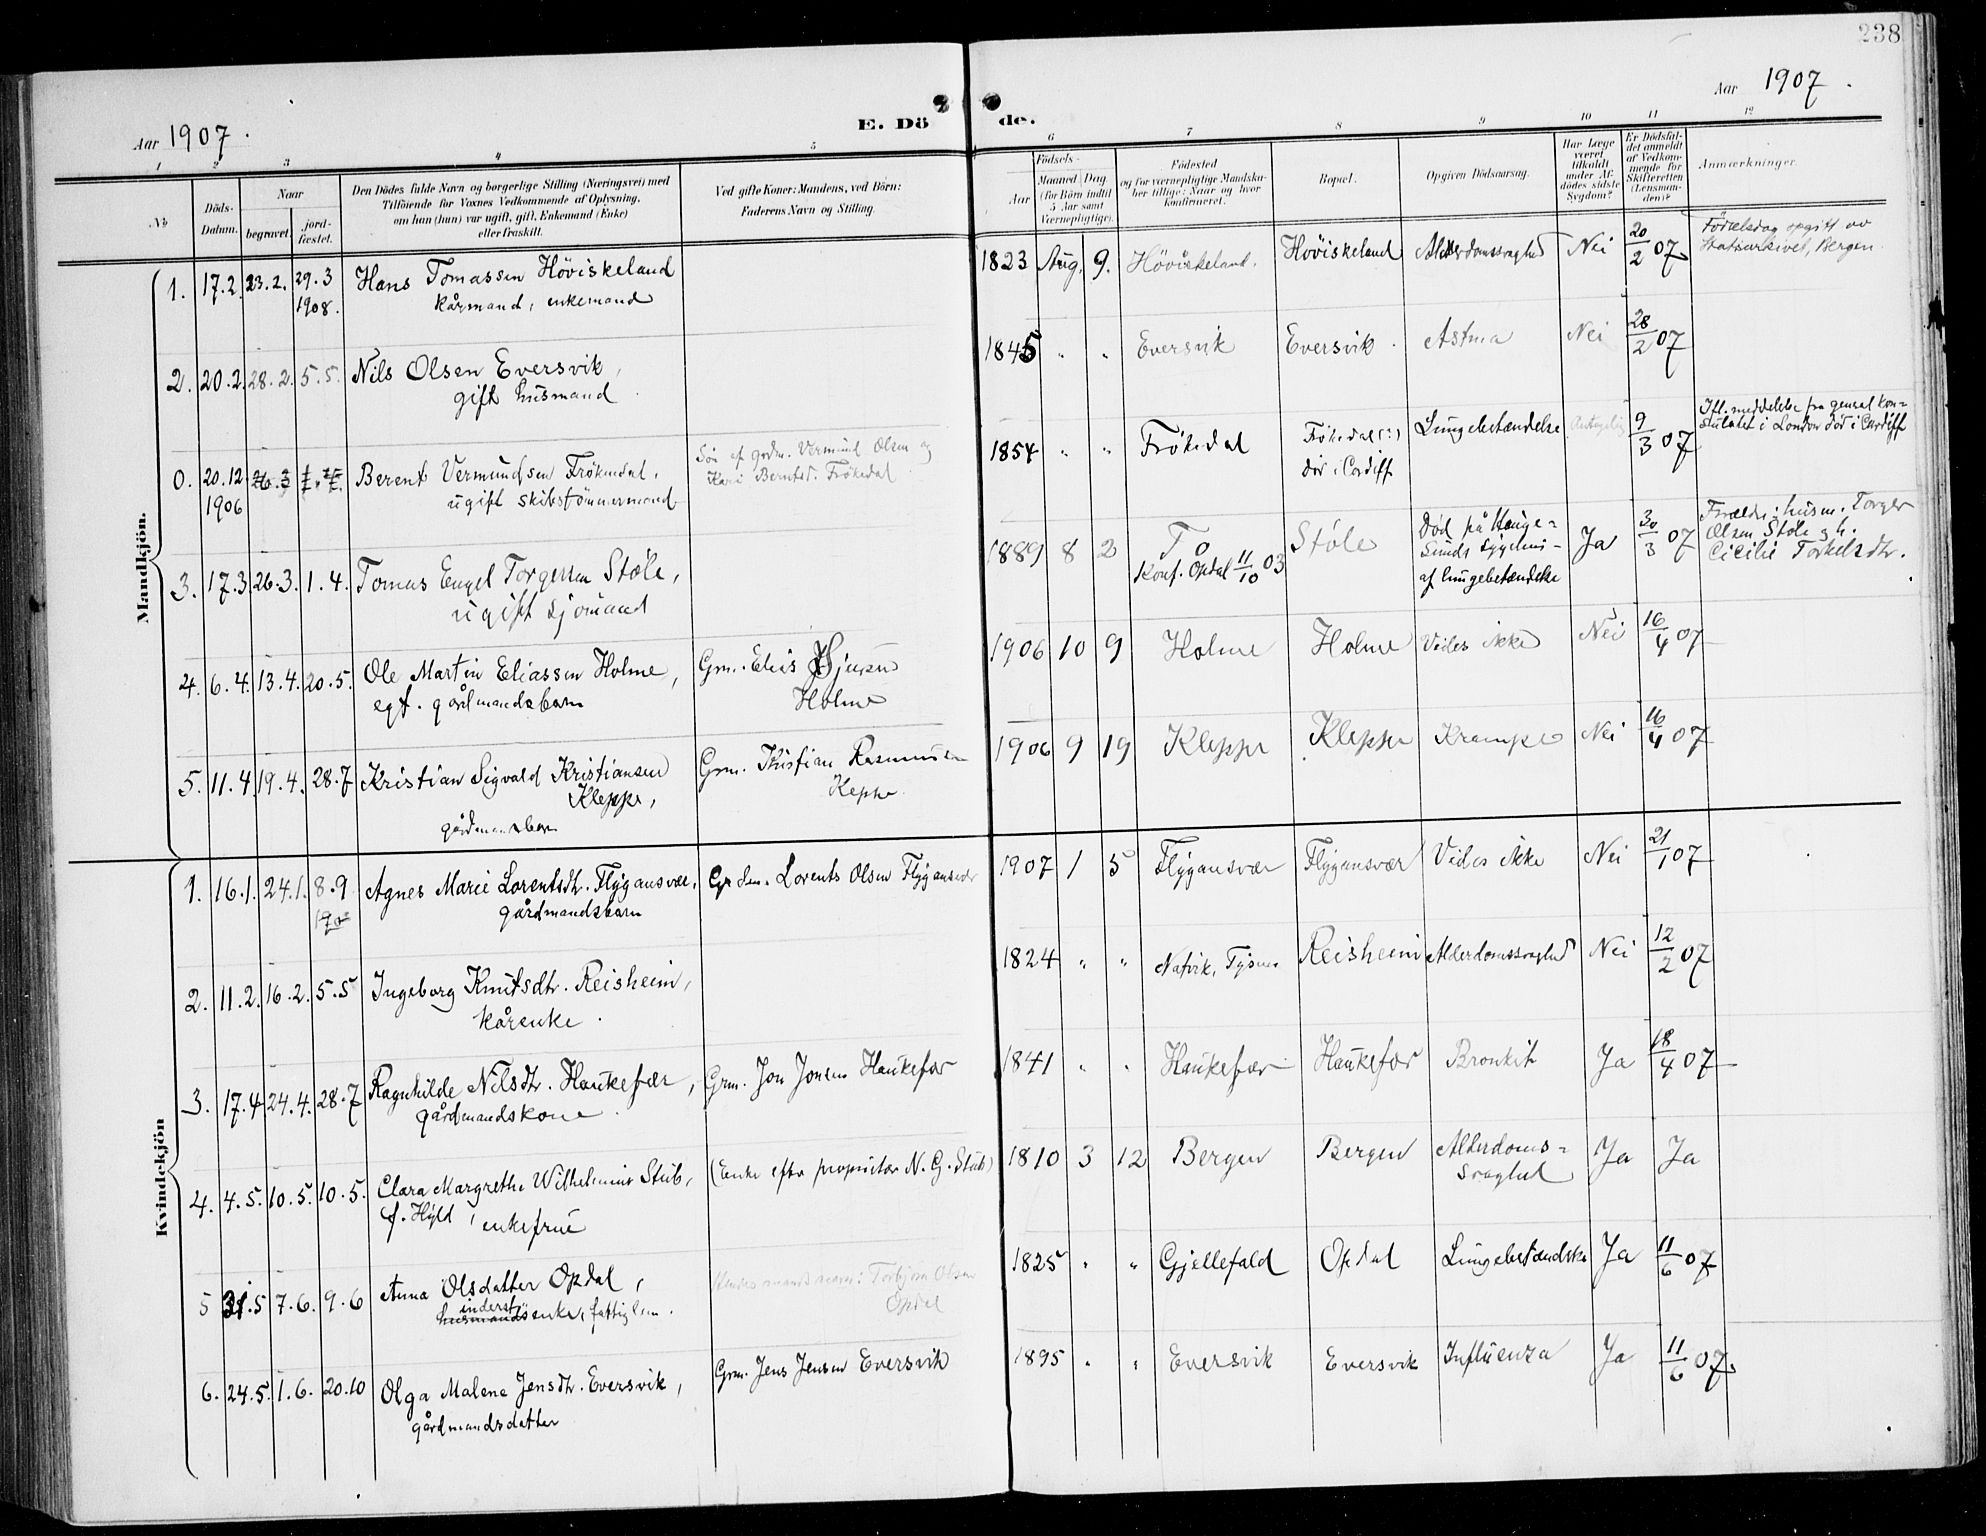 238
Aar 1907.
E. Döde.
Aar 1907.
1 2 3 4 5 6 7 8 9 10 11 12
No
Döds-Datum.
Naar
begravet.
jordfæstet.
Den Dödes fulde Navn og borgerlige Stilling (Næringsvei) med
Tilföiende for Voxnes Vedkommende af Oplysning,
om han (hun) var ugift, gift, Enkemand (Enke)
eller fraskilt.
Ved gifte Koner: Mandens, ved Börn:
Faderens Navn og Stilling.
Födsels-
Aar
Maaned Dag
(for Börn indtil
5 Aar samt
Værnepligtige).
Födested
og for værnepligtige Mandska-
ber tillige: Naar og hvor
konfirmeret.
Bopæl.
Opgiven Dödsaarsag.
Har Læge
været
tilkaldt
under Af-
dödes sidste
Sygdom?
Er Dödsfal-
det anmeldt
af Vedkom-
mende for
Skifteretten
(Lensman-
den)?
Anmærkninger.
Mandkjön.
1. 17.2. 23.2. 29.3 1908. Hans Tomassen Höviskeland
kårmand, enkemand
1823 Aug. 9. Höviskeland. Höviskeland Alderdomssvaghed Nei 20/2 07
Födselsdag opgitt av
Statsarkivet, Bergen.
2. 20.2. 28.2. 5.5. Nils Olsen Eversvik,
gift husmand
1845 " " Eversvik Eversvik. Astma Nei 28/2 07
0. 20.12 1906 26.3 Berent Vermundsen Frökedal,
ugift skibstömmermand
Sön af grdm. Vermund Olsen og
Kari Berntsd. Frökedal
1854 " " Frökedal Frökedal(?)
död i Cardiff
Lungebetændelse 9/3 07
Ifl. meddelelse fra general kon=
sulatet i London död i Cardiff
3. 17.3. 26.3. 1.4. Tomas Engel Torgersen Støle,
ugift sjömand
1889 8 2 Tø
Konf. Opdal 11/10 03
Støle
Död på Hauge=
sunds sygehus -
af lungebetændelse
Ja 30/3 07
Forældr: husm. Torger
Olsen Støle og h.
Cicilie Torkelsdtr.
4. 6.4. 13.4. 20.5. Ole Martin Eliassen Holme,
egt. gårdmandsbarn
Grm. Elias
Holme
1906 10 9 Holme Holme Vides ikke Nei 16/4 07
5. 11.4. 19.4. 28.7 Kristian Sigvald Kristiansen
Kleppe,
gårdmandsbarn
Grm. Kristian Rasmussen
Keppe.
1906 9 19 Kleppe Kleppe Krampe Nei 16/4 07
Kvindekjön
1. 16.1. 24.1. 8.9 Agnes Marie Lorentsdtr. Flygansvær,
gårdmandsbarn
Grdm. Lorents Olsen Flygansvær
1907 1 5 Flygansvær Flygansvær Vides ikke Nei 21/1 07
2. 11.2. 16.2. 5.5 Ingeborg Knutsdtr. Reisheim,
kårenke.
1824 " " Natvik, Tysnes Reisheim Alderdomssvaghed Nei 12/2 07
3. 17.4 24.4. 28.7 Ragnhilde Nilsdtr. Haukefær,
gårdmandskone.
Grm. Jon Jonsen Haukefær
1841 " " Haukefær Haukefær Bronkit Ja 18/4 07
4. 4.5. 10.5. 10.5. Clara Margrethe Wilhelmine Stub,
f. Hyld, enkefrue
(Enke efter proprietær N. G. Stub)
1810 3 12 Bergen Bergen Alderdoms=
svaghed
Ja Ja
5 31.5 7.6. 9.6 Anna Olsdatter Opdal,
inderst
husmandsenke, fattiglem.
Hendes mands navn: Torbjörn Olsen
Opdal
1825 " " Gjellefald Opdal Lungebetændelse Ja 11/6 07
6. 24.5. 1.6. 20.10 Olga Malene Jensdtr. Eversvik,
gårdmandsdatter
Grm. Jens Jensen Eversvik
1895 " " Eversvik Eversvik Influenza Ja 11/6 07.